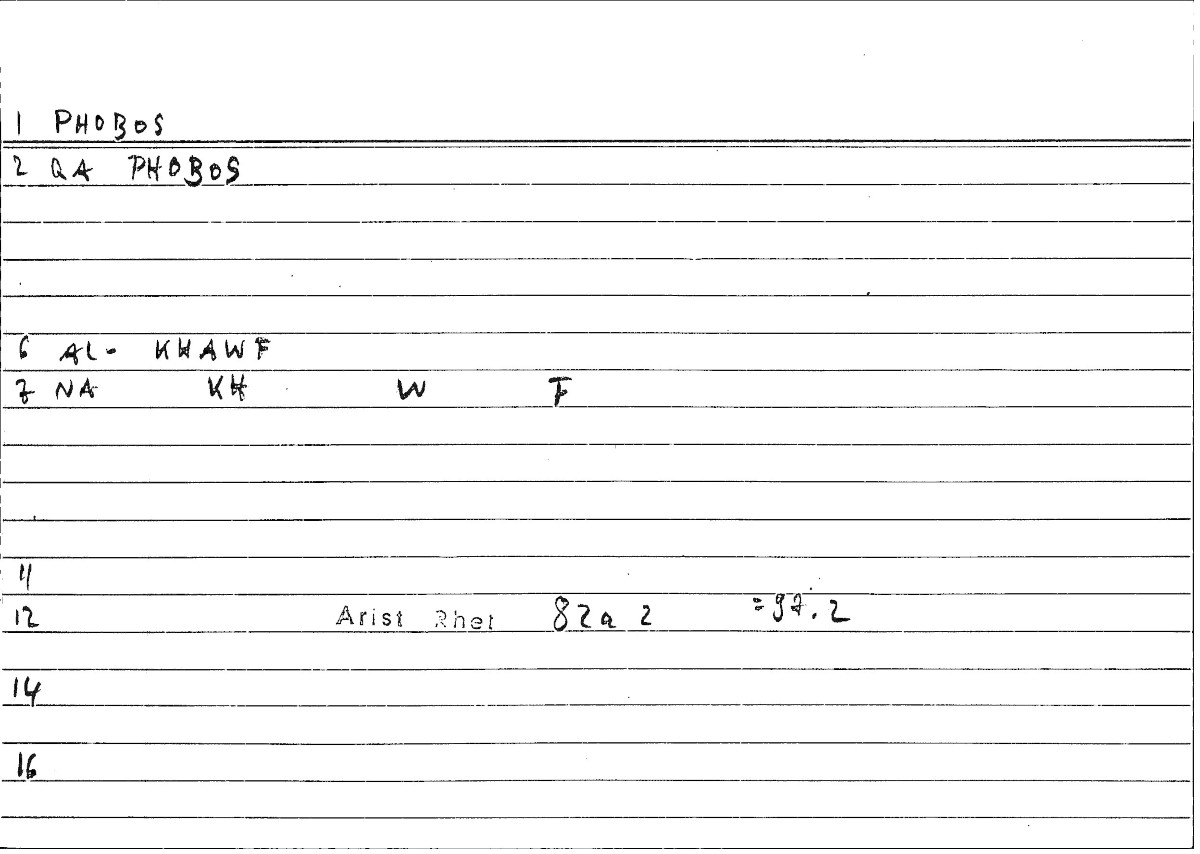 1 PHOBOS
2 QA PHOBOS
6 AL- KHAWF
7 NA KH W F
11
12 Arist Rhet 82a 2 =97.2
14
16